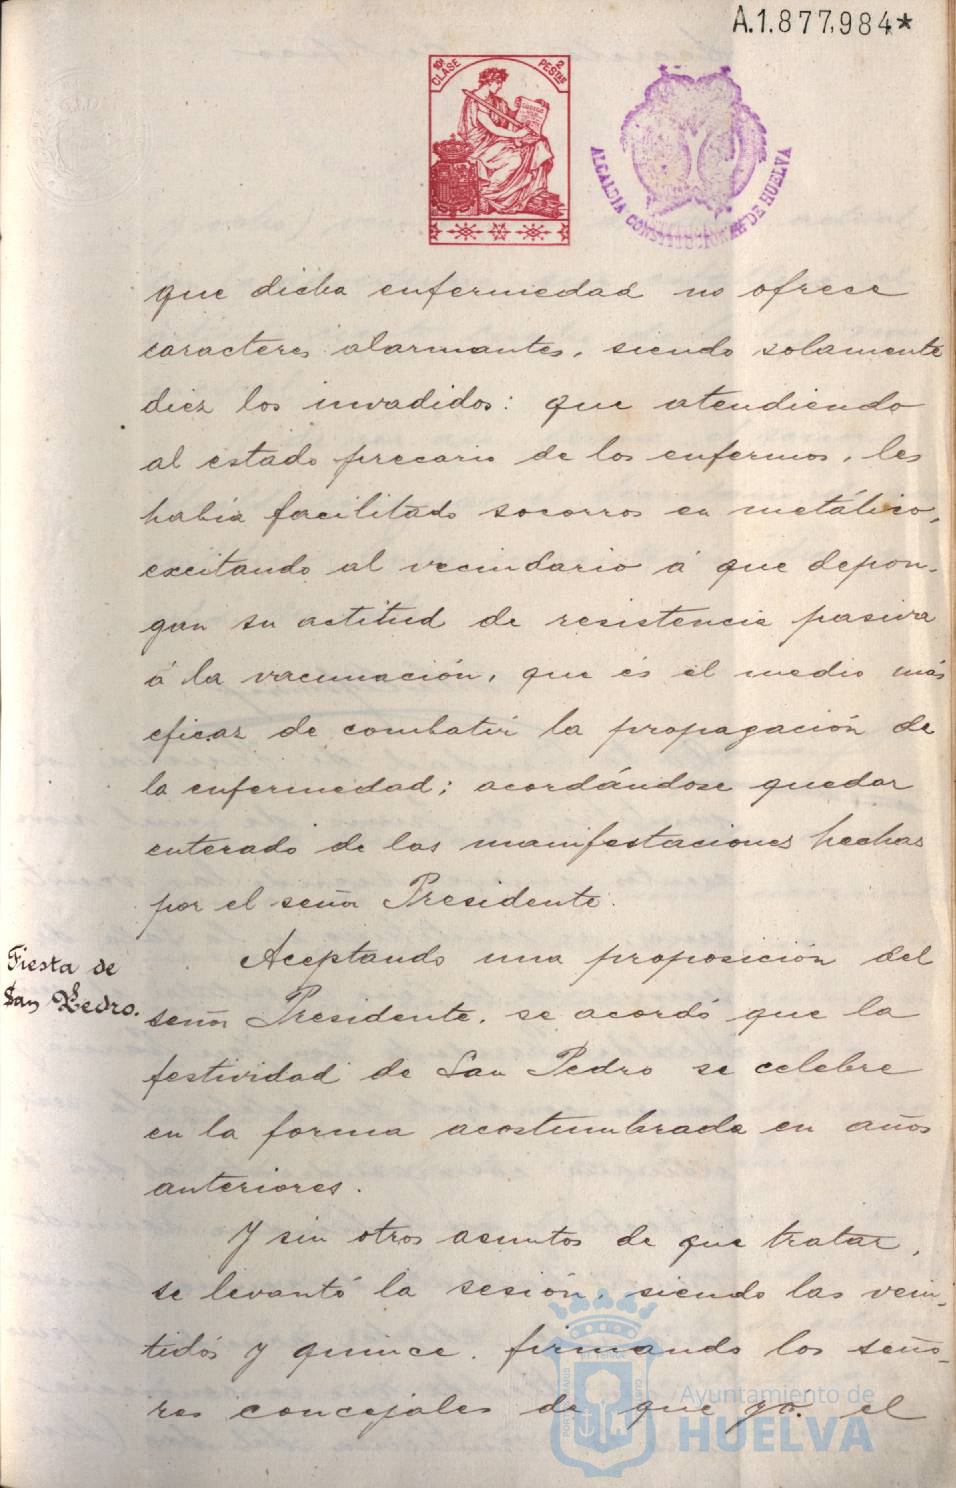 A.1.877,984*
10ª CLASE
2 PESTAS
ALCALDIA CONSTITUCIONAL DE HUELVA
que dicha enfermedad no ofrece
caracteres alarmantes, siendo solamente
diez los invadidos: que atendiendo
al estado precario de los enfermos, les
había facilitado socorros en metálico,
excitando al vecindario á que depon-
gan su actitud de resistencia pasiva
á la vacunación, que és el medio más
eficaz de combatir la propagación de
la enfermedad; acordándose quedar
enterado de las manifestaciones hechas
por el señor Presidente.
Fiesta de
San Pedro.
Aceptando una proposición del
señor Presidente, se acordó que la
festividad de San Pedro se celebre
en la forma acostumbrada en años
anteriores.
Y sin otros asuntos de que tratar,
se levantó la sesión, siendo las vein-
tidós y quince, firmando los seño-
res concejales de que yó, el
Ayuntamiento de
HUELVA